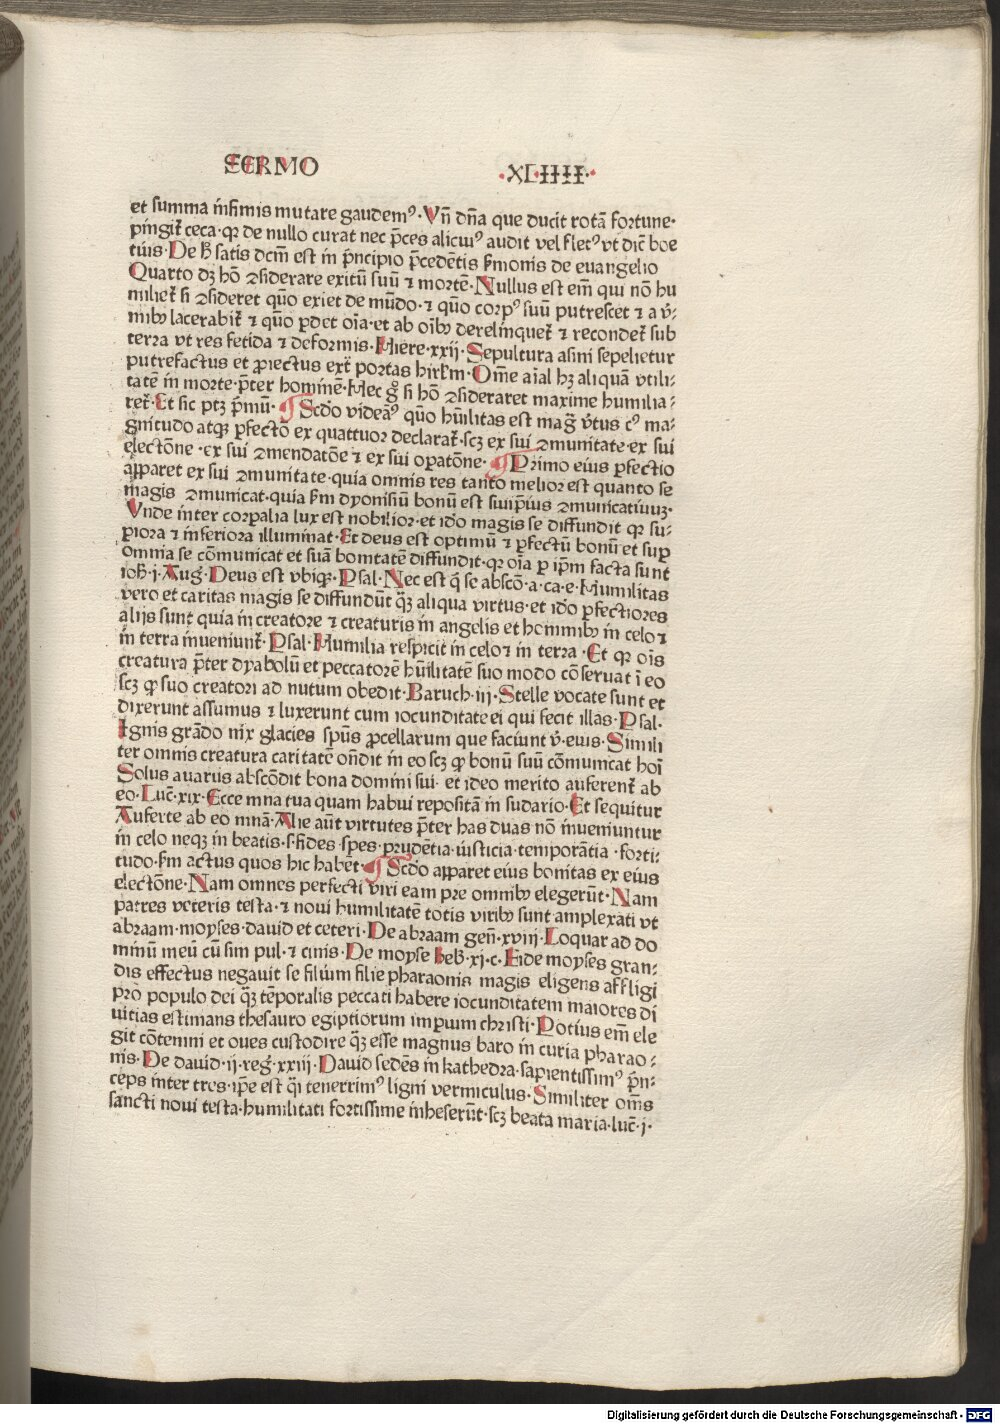 SERMO XLIIII
et summa infimis mutare gaudemꝰ. Vñ dña que ducit rotã fortune.
pingit̃ ceca. qꝛ de nullo curat nec p̃ces alicuiꝰ audit vel fletꝰ vt dic̃ boe
tius. De h̃ satis dcm̃ est in p̃ncipio p̃cedẽtis s̃monis de euangelio
Quarto dꝫ hõ ↄsiderare exitũ suũ ⁊ mortẽ. Nullus est em̃ qui nõ hu
miliet̃ si ↄsideret quõ exiet de mũdo. ⁊ quõ corpꝰ suũ putrescet ⁊ a v̾⸗
mibꝫ lacerabit̃ ⁊ quõ ꝑdet oĩa. et ab oĩbꝫ derelinquet̃ ⁊ recondet̃ sub
terra vt res fetida ⁊ deformis. Hiere. xxij. Sepultura asini sepelietur
putrefactus et ꝓiectus ext̃ portas hirl̃m. Om̃e aĩal hꝫ aliquã vtili⸗
tatẽ in morte. p̃ter hominẽ. Hec g̃ si hõ ↄsideraret maxime humilia⸗
ret̃. Et sic ptꝫ p̃mũ. ¶ Scd̃o videãꝰ quõ hũilitas est mag̃ v̾tus cꝰ ma⸗
gnitudo atqꝫ ꝑfectõ ex quattuor declarat̃. scꝫ ex sui ↄmunitate. ex sui
electõne. ex sui ↄmendatõne ⁊ ex sui oꝑatõne. ¶ Primo eius ꝑfectio
apparet ex sui ↄmunitate. quia omnis res tanto melior est quanto se
magis ↄmunicat. quia s̃m dyonisiũ bonũ est suiip̃ius ↄmunicatiuuꝫ.
Vnde inter corꝑalia lux est nobilior. et id̃o magis se diffundit qꝛ su⸗
ꝑiora ⁊ inferiora illuminat. Et deus est optimũ ⁊ ꝑfectũ bonũ et suꝑ
omnia se cõmunicat et suã bonitatẽ diffundit. qꝛ oĩa ꝑ ip̃m facta sunt
ioh̃. j. Aug̃. Deus est vbiqꝫ. Psal. Nec est q̃ se abscõ. a. ca. e. Humilitas
vero et caritas magis se diffundũt q̃ꝫ aliqua virtus. et id̃o ꝑfectiores
alijs sunt quia in creatore ⁊ creaturis in angelis et hominibꝫ in celo ⁊
in terra inueniunt̃. Psal. Humilia respicit in celo ⁊ in terra. Et qꝛ oĩs
creatura p̃ter dyabolũ et peccatorẽ hũilitatẽ suo modo cõseruat ĩ eo
scꝫ ꝙ suo creatori ad nutum obedit. Baruch. iij. Stelle vocate sunt et
dixerunt assumus ⁊ luxerunt cum iocunditate ei qui fecit illas. Psal.
Ignis grãdo nix glacies sp̃us ꝓcellarum que faciunt v̾. eius. Simili
ter omnis creatura caritatẽ oñdit in eo scꝫ ꝙ bonũ suũ cõmunicat hoĩ
Solus auarus abscõdit bona domini sui. et ideo merito auferent̃ ab
eo. Luc̃. xix. Ecce mna tua quam habui repositã in sudario. Et sequitur
Auferte ab eo mnã. Alie aũt virtutes p̃ter has duas nõ inueniuntur
in celo neqꝫ in beatis. s. fides. spes. prudẽtia. iusticia. temporãtia. forti⸗
tudo. s̃m actus quos hic habẽt. ¶ Scd̃o apparet eius bonitas ex eius
electõne. Nam omnes perfecti viri eam pre omnibꝫ elegerũt. Nam
patres veteris testa. ⁊ noui humilitatẽ totis viribꝫ sunt amplexati vt
abraam. moyses. dauid et ceteri. De abraam geñ. xviij. Loquar ad do
minũ meũ cũ sim pul. ⁊ cinis. De moyse heb̃. xj. c. Fide moyses gran⸗
dis effectus negauit se filium filie pharaonis magis eligens affligi
pro populo dei q̃ꝫ tẽporalis peccati habere iocunditatem maiores di
uitias estimans thesauro egiptiorum impium christi. Potius em̃ ele
git cõtemni et oues custodire q̃ꝫ esse magnus baro in curia pharao⸗
nis. De dauid. ij. reg̃. xxiij. Dauid sedẽs in kathedra. sapientissimꝰ p̃n⸗
ceps inter tres. ip̃e est q̃i tenerrimꝰ ligni vermiculus. Similiter om̃s
sancti noui testa. humilitati fortissime inheserũt. scꝫ beata maria. luc̃. j.
Digitalisierung gefördert durch die Deutsche Forschungsgemeinschaft - DFG